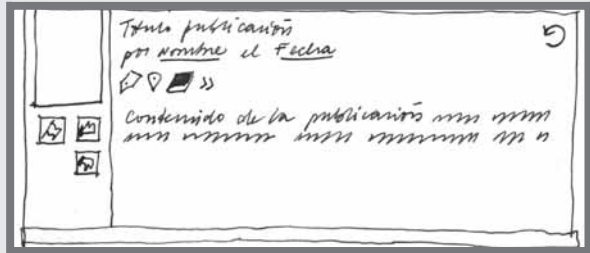 Título publicación
por Nombre el Fecha
»
Contenido de la publicación